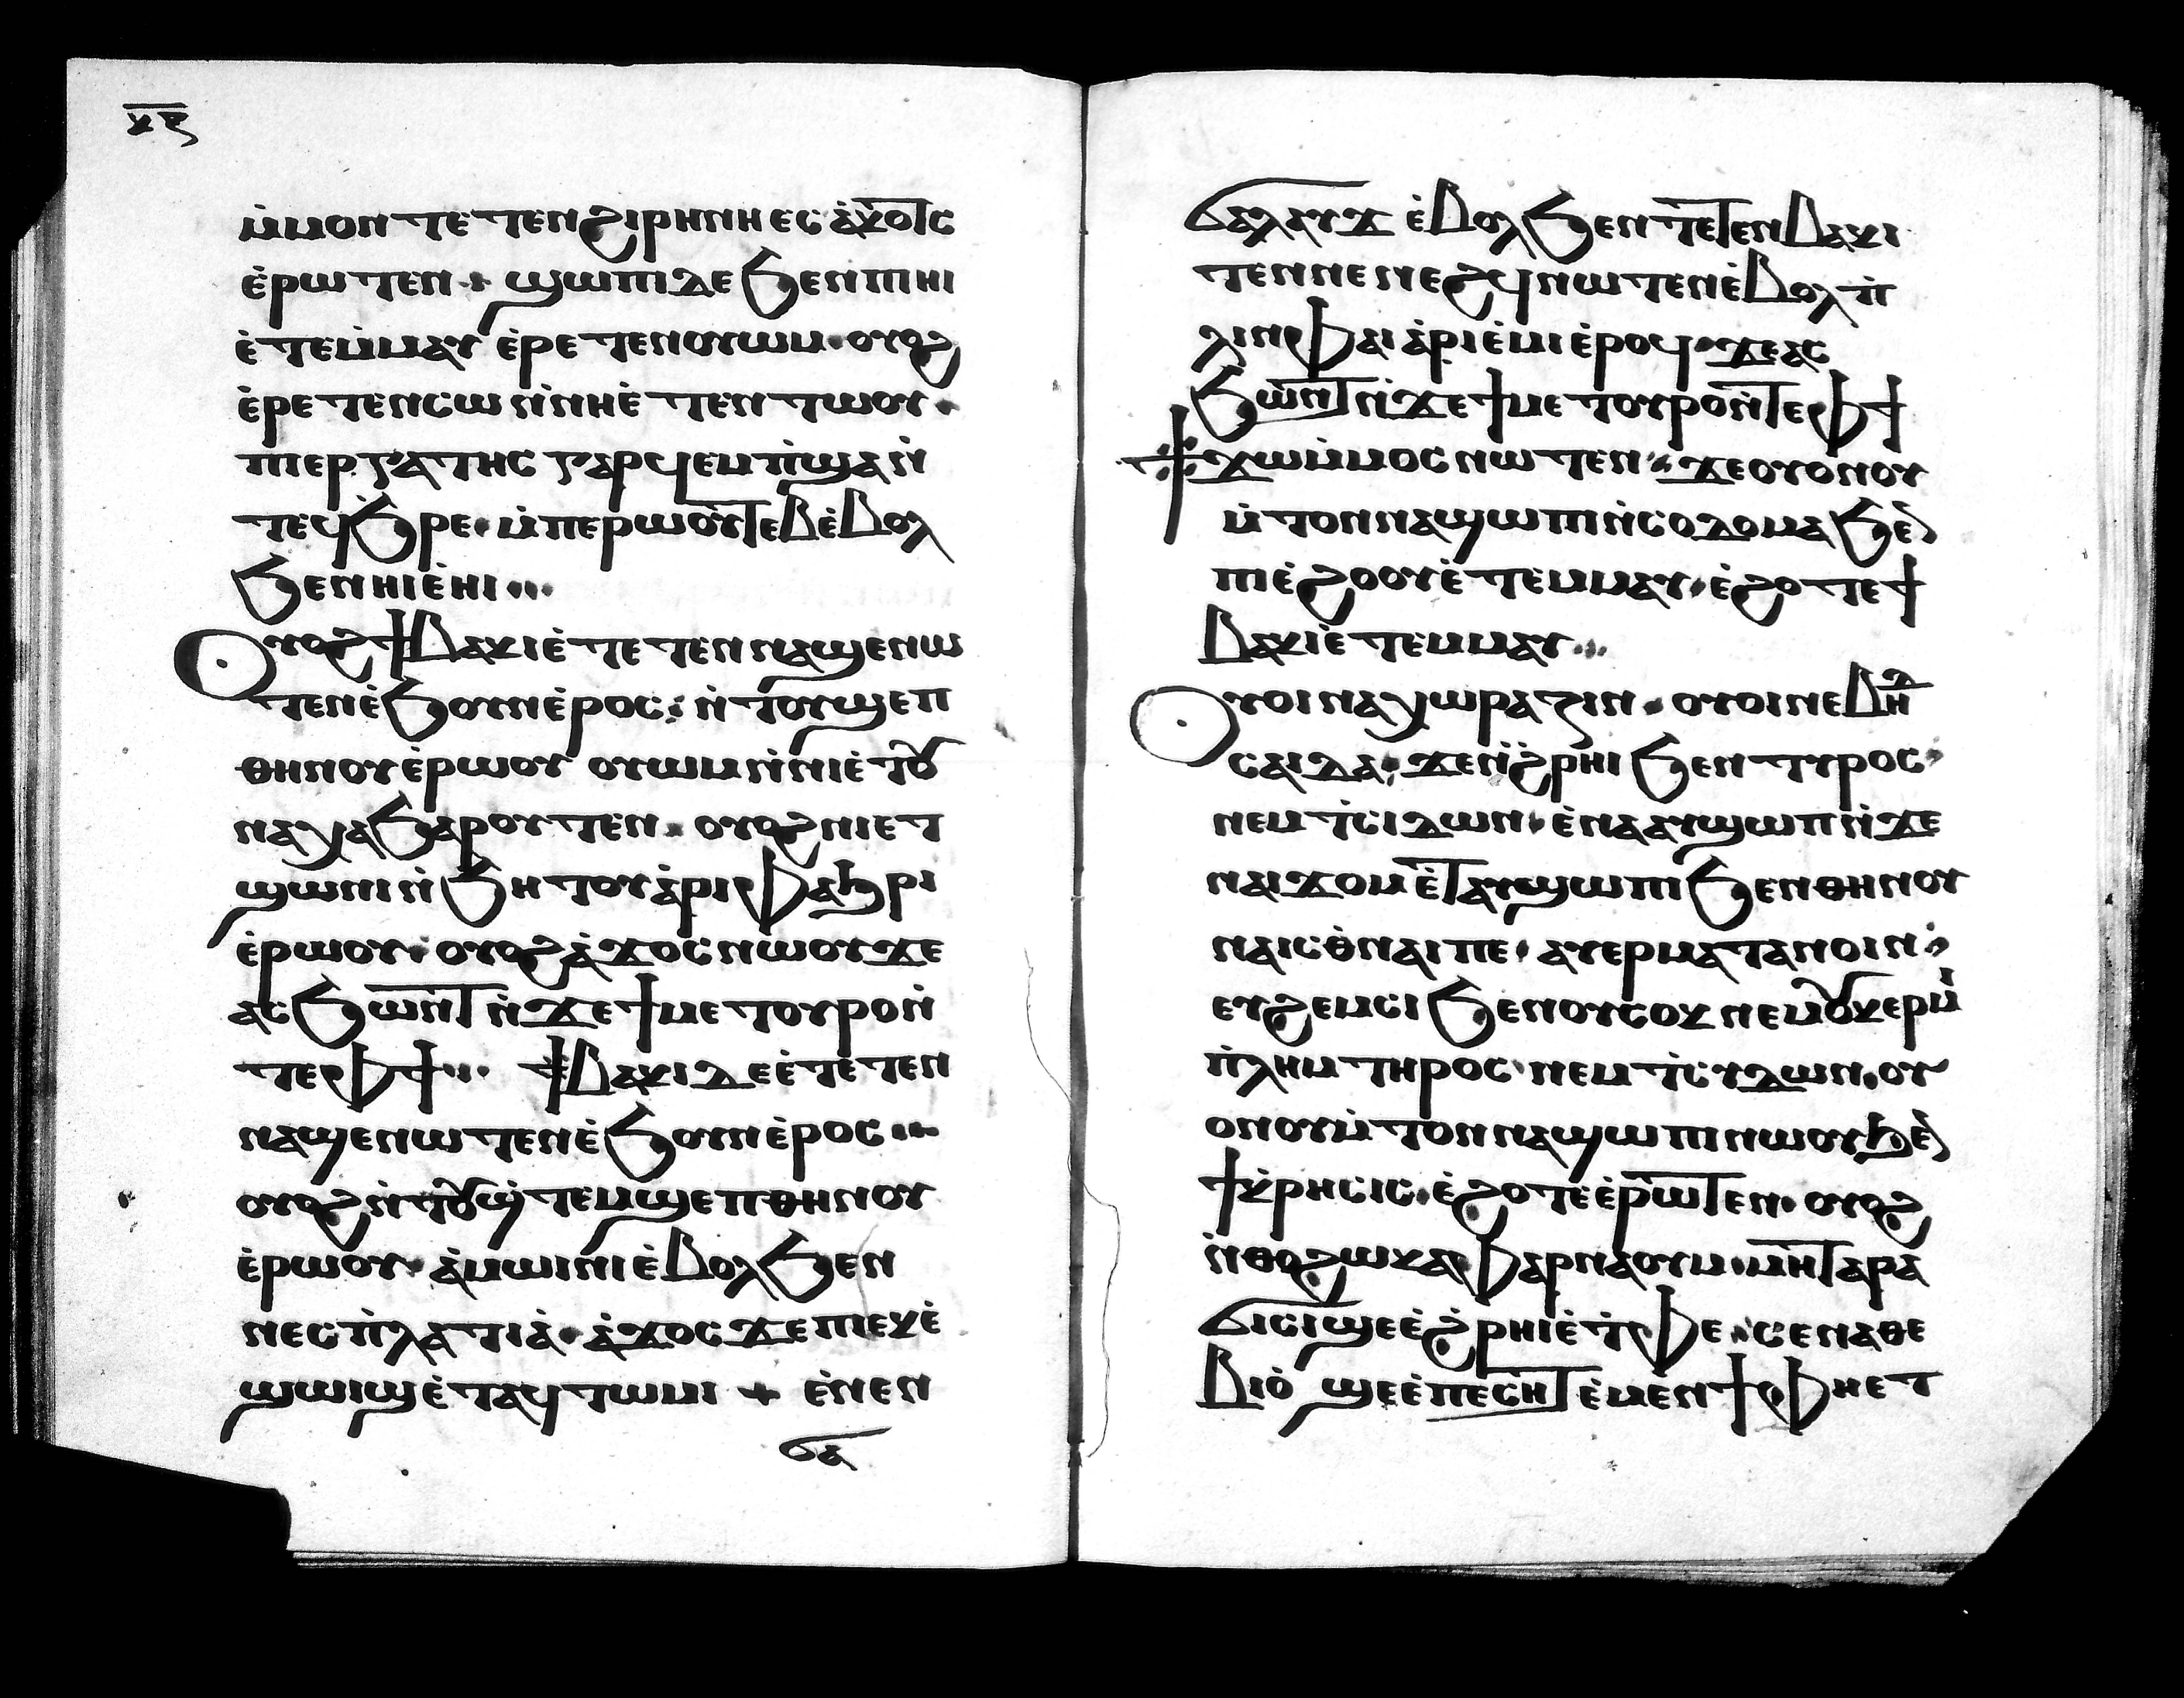 ⲭ︦ⲝ︦
ⲙ̀ⲙⲟⲛ ⲧⲉ ⲧⲉⲛϩⲓⲣⲏⲛⲏ ⲉⲥ ⲁ̀ⲕⲟⲧⲥ
ⲉ̀ⲣⲱⲧⲉⲛ ϣⲱⲡⲓ ⲇⲉ ϧⲉⲛ ⲡⲓⲏⲓ
ⲉ̀ⲧⲉⲙ̀ⲙⲁⲩ ⲉ̀ⲣⲉⲧⲉⲛⲟⲩⲱⲙ · ⲟⲩⲟϩ
ⲉ̀ⲣⲉⲧⲉⲛⲥⲱ ⲛ̀ⲛⲏⲉ̀ⲧⲉⲛⲧⲱⲟⲩ ·
ⲡⲓⲉⲣⲅⲁⲧⲏⲥ ⲅⲁⲣ ϥⲉⲙⲡ̀ϣⲁ ⲛ̀
ⲧⲉϥϧⲣⲉ · ⲙ̀ⲡⲉⲣⲱⲟⲩⲧⲉⲃ ⲉ̀ⲃⲟⲗ
ϧⲉⲛ ⲏⲓ ⲉ̀ⲏⲓ ⁖
Ⲟⲩⲟϩ ϯⲃⲁⲕⲓ ⲉ̀ⲧⲉⲧⲉⲛⲛⲁϣⲉⲛⲱ
ⲧⲉⲛ ⲉ̀ϧⲟⲩⲛ ⲉ̀ⲣⲟⲥ : ⲛ̀ⲧⲟⲩϣⲉⲡ
ⲑⲏⲛⲟⲩ ⲉ̀ⲣⲱⲟⲩ ⲟⲩⲱⲙ ⲛ̀ⲛⲓⲉ̀ⲧⲟⲩ
ⲛⲁⲭⲁϧⲁⲣⲟⲩⲧⲉⲛ · ⲟⲩⲟϩ ⲛⲓⲉⲧ
ϣⲱⲛⲓ ⲛ̀ϧⲏⲧⲟⲩ ⲁ̀ⲣⲓⲫⲁϧⲣⲓ
ⲉ̀ⲣⲱⲟⲩ · ⲟⲩⲟϩ ⲁ̀ϫⲟⲥ ⲛⲱⲟⲩ ϫⲉ
ⲁⲥϧⲱⲛ̀ⲧ ⲛ̀ϫⲉ ϯⲙⲉⲧⲟⲩⲣⲟ ⲛ̀
ⲧⲉ ⲫϯ ⁖ ϯⲃⲁⲕⲓ ⲇⲉ ⲉ̀ⲧⲉⲧⲉⲛ
ⲛⲁϣⲉⲛⲱⲧⲉⲛ ⲉ̀ϧⲟⲩⲛ ⲉ̀ⲣⲟⲥ ⁖
ⲟⲩⲟϩ ⲛ̀ⲧⲟⲩϣ̀ⲧⲉⲙϣⲉⲡ ⲑⲏⲛⲟⲩ
ⲉ̀ⲣⲱⲟⲩ · ⲁ̀ⲙⲱⲓⲛⲓ ⲉ̀ⲃⲟⲗ ϧⲉⲛ
ⲛⲉⲥⲡ̀ⲗⲁⲧⲓⲁ̀ · ⲁ̀ϫⲟⲥ ϫⲉ ⲡⲓⲕⲉ
ϣⲱⲓϣ ⲉ̀ⲧⲁϥⲧⲱⲙⲓ + ⲉ̀ⲛⲉⲛ
ϭⲁ
ϭⲁⲗⲁⲩϫ ⲉ̀ⲃⲟⲗ ϧⲉⲛ ⲧⲉⲧⲉⲛⲃⲁⲕⲓ
ⲧⲉⲛⲛⲉⲛⲉϩϥ ⲛⲱⲧⲉⲛ ⲉ̀ⲃⲟⲗ ⲡ̀
ⲗⲓⲛ ⲫⲁⲓ ⲁ̀ⲣⲓⲉ̀ⲙⲓ ⲉ̀ⲣⲟϥ · ϫⲉ ⲁⲥ
ϧⲱⲛ̀ⲧ ⲛ̀ϫⲉ ϯⲙⲉⲧⲟⲩⲣⲟ ⲛ̀ⲧⲉ ⲫϯ
ϯϫⲱ ⲙ̀ⲙⲟⲥ ⲛⲱⲧⲉⲛ · ϫⲉ ⲟⲩⲟⲛ ⲟⲩ
ⲙ̀ⲧⲟⲛ ⲛⲁϣⲱⲡⲓ ⲛ̀ⲥⲟⲇⲟⲙⲁ ϧⲉⲛ
ⲡⲓⲉ̀ϩⲟⲟⲩ ⲉ̀ⲧⲉⲙⲙⲁⲩ · ⲉ̀ϩⲟⲧⲉ ϯ
ⲃⲁⲕⲓ ⲉ̀ⲧⲉⲙⲙⲁⲩ ⁖
Ⲟⲩⲟⲓ ⲛⲁ ⲭⲱⲣⲁⲍⲓⲛ · ⲟⲩⲟⲓ ⲛⲉ ⲃⲏⲇ
ⲥⲁⲓⲇⲁ · ϫⲉ ⲛ̀ϩ̀ⲣⲏⲓ ϧⲉⲛ ⲧⲩⲣⲟⲥ
ⲛⲉⲙ ⲧ̀ⲥⲓⲇⲱⲛ · ⲉ̀ⲛⲁⲁⲩϣⲱⲡⲓ ⲛ̀ϫⲉ
ⲛⲁⲓϫⲟⲙ ⲉ̀ⲧⲁⲩϣⲱⲡⲓ ϧⲉⲛ ⲑⲏⲛⲟⲩ
ⲛⲁⲓⲥⲑ̀ⲛⲁⲓ ⲡⲉ · ⲁⲩⲉⲣⲙⲁⲧⲁⲛⲟⲓⲛ
ⲉⲩϩⲉⲙⲥⲓ ϧⲉⲛ ⲟⲩⲥⲟⲕ ⲛⲉⲙ ⲟⲩⲕⲉⲣⲙ̀
ⲡ̀ⲗⲏⲛ ⲧⲏⲣⲟⲥ · ⲛⲉⲙ ⲧ̀ⲥⲩⲇⲱⲛ · ⲟⲩ
ⲟⲛ ⲟⲩⲙ̀ⲧⲟⲛ ⲛⲁϣⲱⲡⲓ ⲛⲱⲟⲩ ϧⲉⲛ
ϯⲕ̀ⲣⲏⲥⲓⲥ · ⲉ̀ϩⲟⲧⲉ ⲉ̀ⲣⲱⲧⲉⲛ · ⲟⲩⲟϩ
ⲛ̀ⲑⲟ ϩⲱ ⲕⲁⲫⲁⲣⲛⲁⲟⲩⲙ · ⲙⲏ ⲧⲁⲣⲁ
ϭⲓⲥⲓ ϣⲉ ⲉ̀ϩ̀ⲣⲏⲓ ⲉ̀ⲧ̀ⲫⲉ · ⲥⲉⲛⲁⲑⲉ
ⲃⲓⲟ̀ ϣⲉ ⲉ̀ⲡⲉⲥⲏⲧ ⲉ̀ⲙⲉⲛϯ ⲫⲏ ⲉⲧ